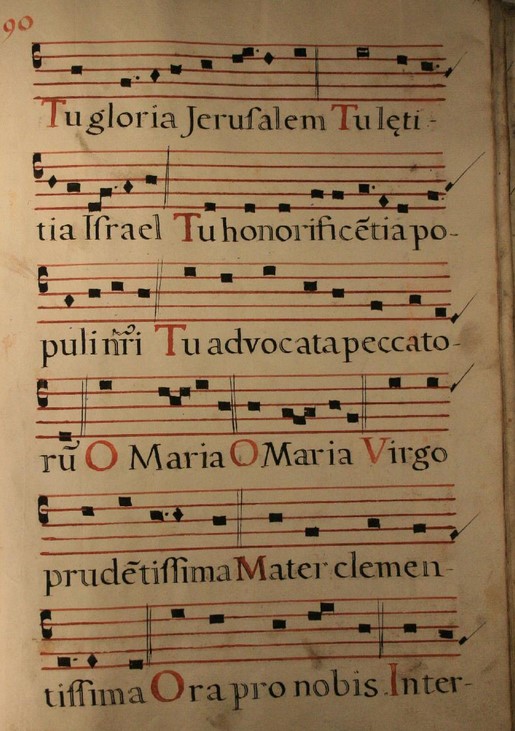 90
Tu gloria Jeruſalem Tu lęti-
tia Iſrael Tu honorificẽtia po-
puli nr̃i Tu advocata peccato-
rũ O Maria O Maria Virgo
prudẽtiſſima Mater clemen-
tiſſima Ora pro nobis Inter-